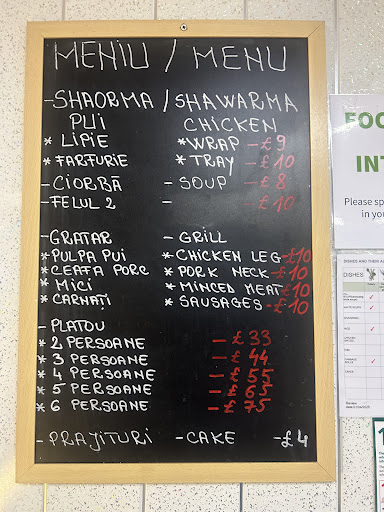 MENIU / MENU
-SHAORMA / SHAWARMA
PUI CHICKEN
* LIPIE * WRAP -£9
* FARFURIE * TRAY -£10
-CIORBĂ - SOUP -£8
-FELUL 2 - -£10
-GRATAR - GRILL
* PULPA PUI * CHICKEN LEG-£10
* CEAFA PORC * PORK NECK-£10
* MICI * MINCED MEAT-£10
* CARNAȚI * SAUSAGES-£10
- PLATOU
* 2 PERSOANE - £33
* 3 PERSOANE - £44
* 4 PERSOANE - £55
* 5 PERSOANE - £65
* 6 PERSOANE - £75
- PRAJITURI - CAKE -£4
FOO
INT
Please sp
in you
DISHES AND THEIR AL
DISHES